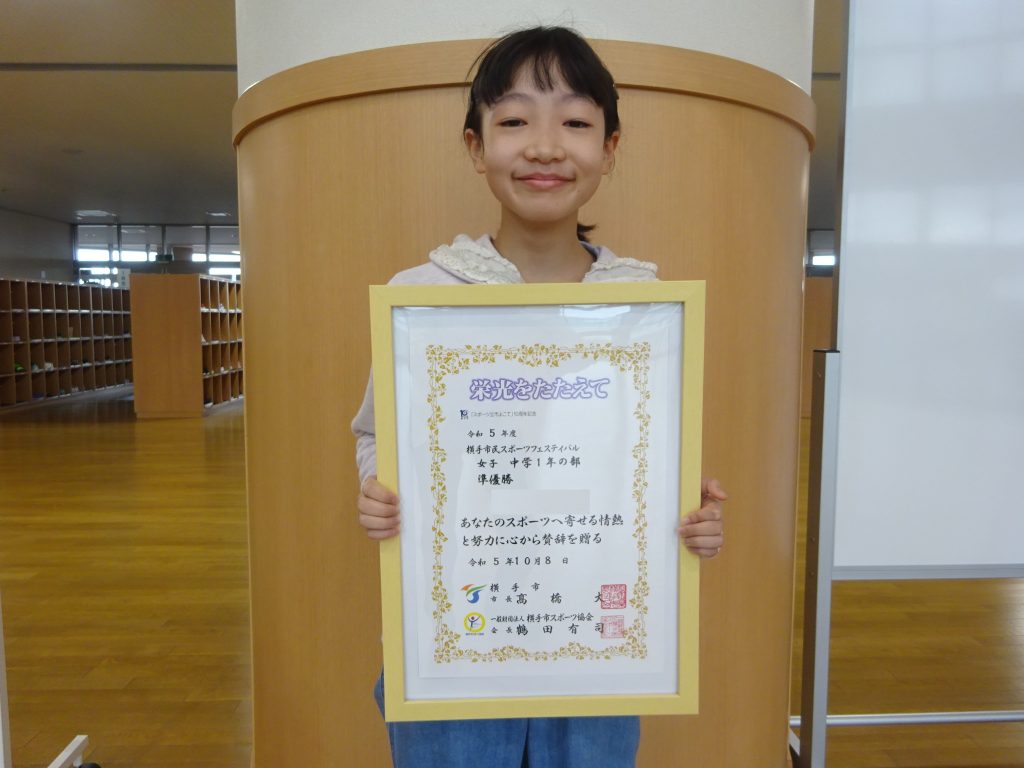 栄光をたたえて
「スポーツ立市よこて」10周年記念
令和5年度
横手市民スポーツフェスティバル
女子 中学1年の部
準優勝
あなたのスポーツへ寄せる情熱
と努力に心から賛辞を贈る
令和5年10月8日
横手市
市長 高橋 大
一般財団法人 横手市スポーツ協会
会長 鶴田有司